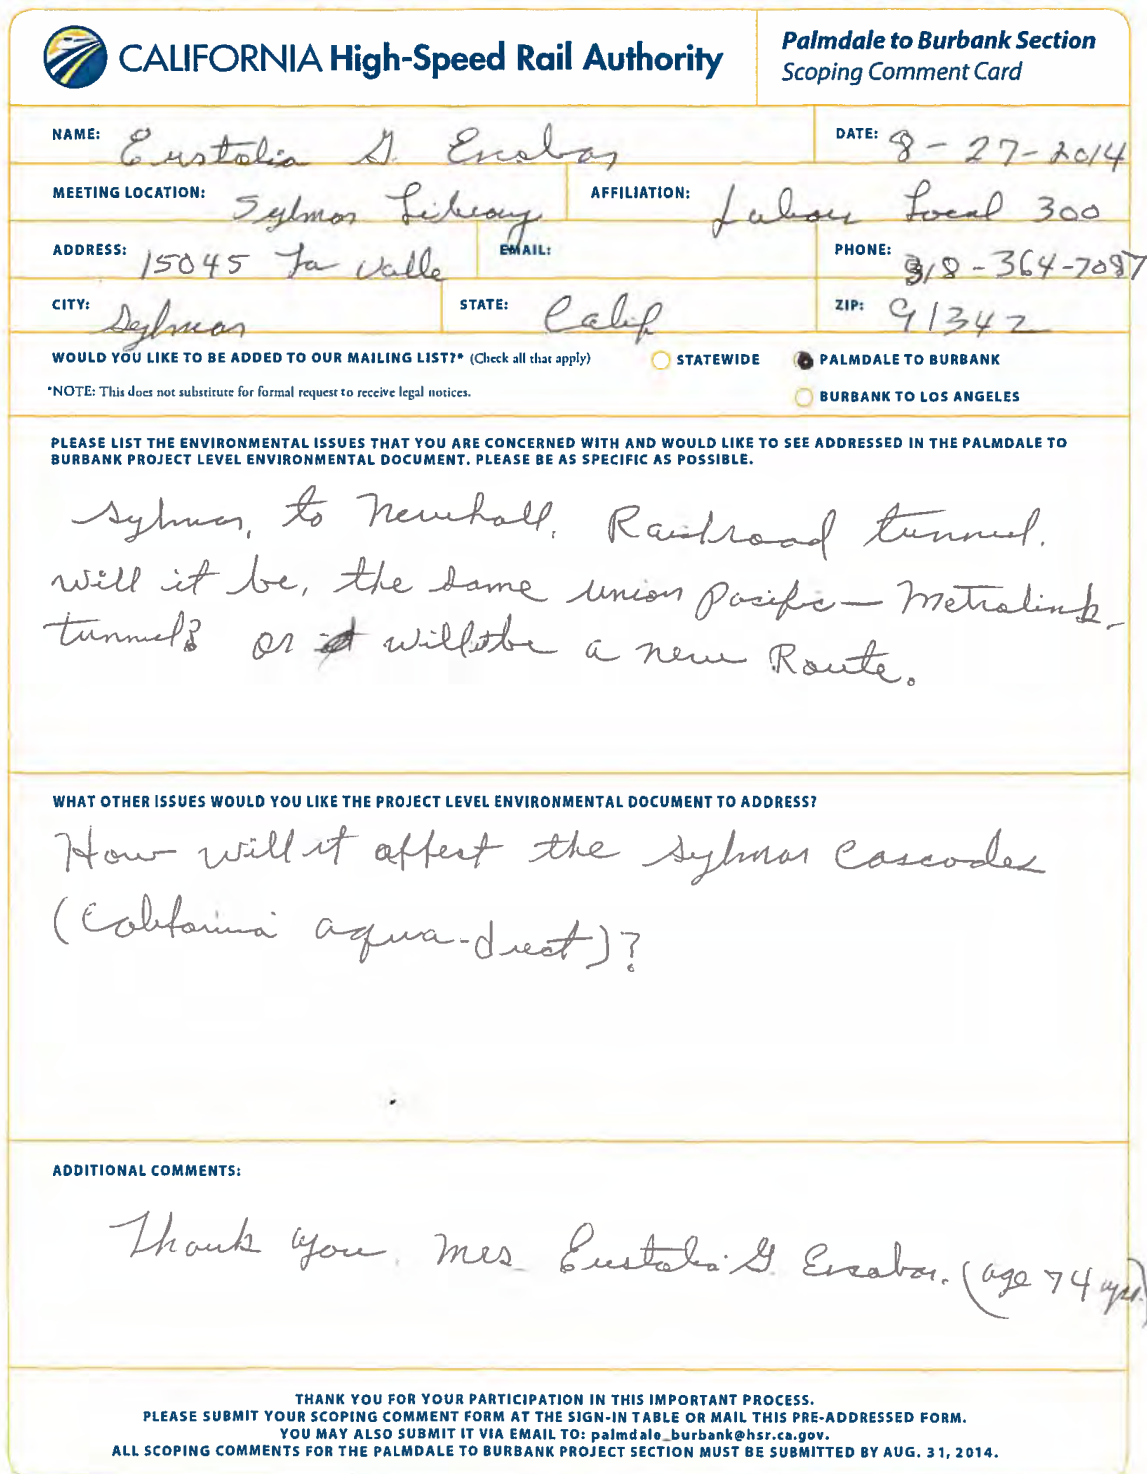 CALIFORNIA High-Speed Rail Authority
Palmdale to Burbank Section
Scoping Comment Card
NAME: Eustolia G. Escobar
DATE: 8-27-2014
MEETING LOCATION: Sylmar Library
AFFILIATION: Labour Local 300
ADDRESS: 15045 La Valle
EMAIL:
PHONE: 818-364-7087
CITY: Sylmar
STATE: Calif
ZIP: 91342
WOULD YOU LIKE TO BE ADDED TO OUR MAILING LIST?* (Check all that apply)
STATEWIDE
PALMDALE TO BURBANK
*NOTE: This does not substitute for formal request to receive legal notices.
BURBANK TO LOS ANGELES
PLEASE LIST THE ENVIRONMENTAL ISSUES THAT YOU ARE CONCERNED WITH AND WOULD LIKE TO SEE ADDRESSED IN THE PALMDALE TO
BURBANK PROJECT LEVEL ENVIRONMENTAL DOCUMENT. PLEASE BE AS SPECIFIC AS POSSIBLE.
Sylmar, to Newhall. Railroad tunnel.
will it be, the same union Pacific - Metrolink-
tunnel? or it will be a new Route.
WHAT OTHER ISSUES WOULD YOU LIKE THE PROJECT LEVEL ENVIRONMENTAL DOCUMENT TO ADDRESS?
How will it affect the Sylmar Cascades
(California aqua-duct)?
ADDITIONAL COMMENTS:
Thank you. Mrs Eustolia G. Escobar. (age 74 yrs.)
THANK YOU FOR YOUR PARTICIPATION IN THIS IMPORTANT PROCESS.
PLEASE SUBMIT YOUR SCOPING COMMENT FORM AT THE SIGN-IN TABLE OR MAIL THIS PRE-ADDRESSED FORM.
YOU MAY ALSO SUBMIT IT VIA EMAIL TO: palmdale_burbank@hsr.ca.gov.
ALL SCOPING COMMENTS FOR THE PALMDALE TO BURBANK PROJECT SECTION MUST BE SUBMITTED BY AUG. 31, 2014.